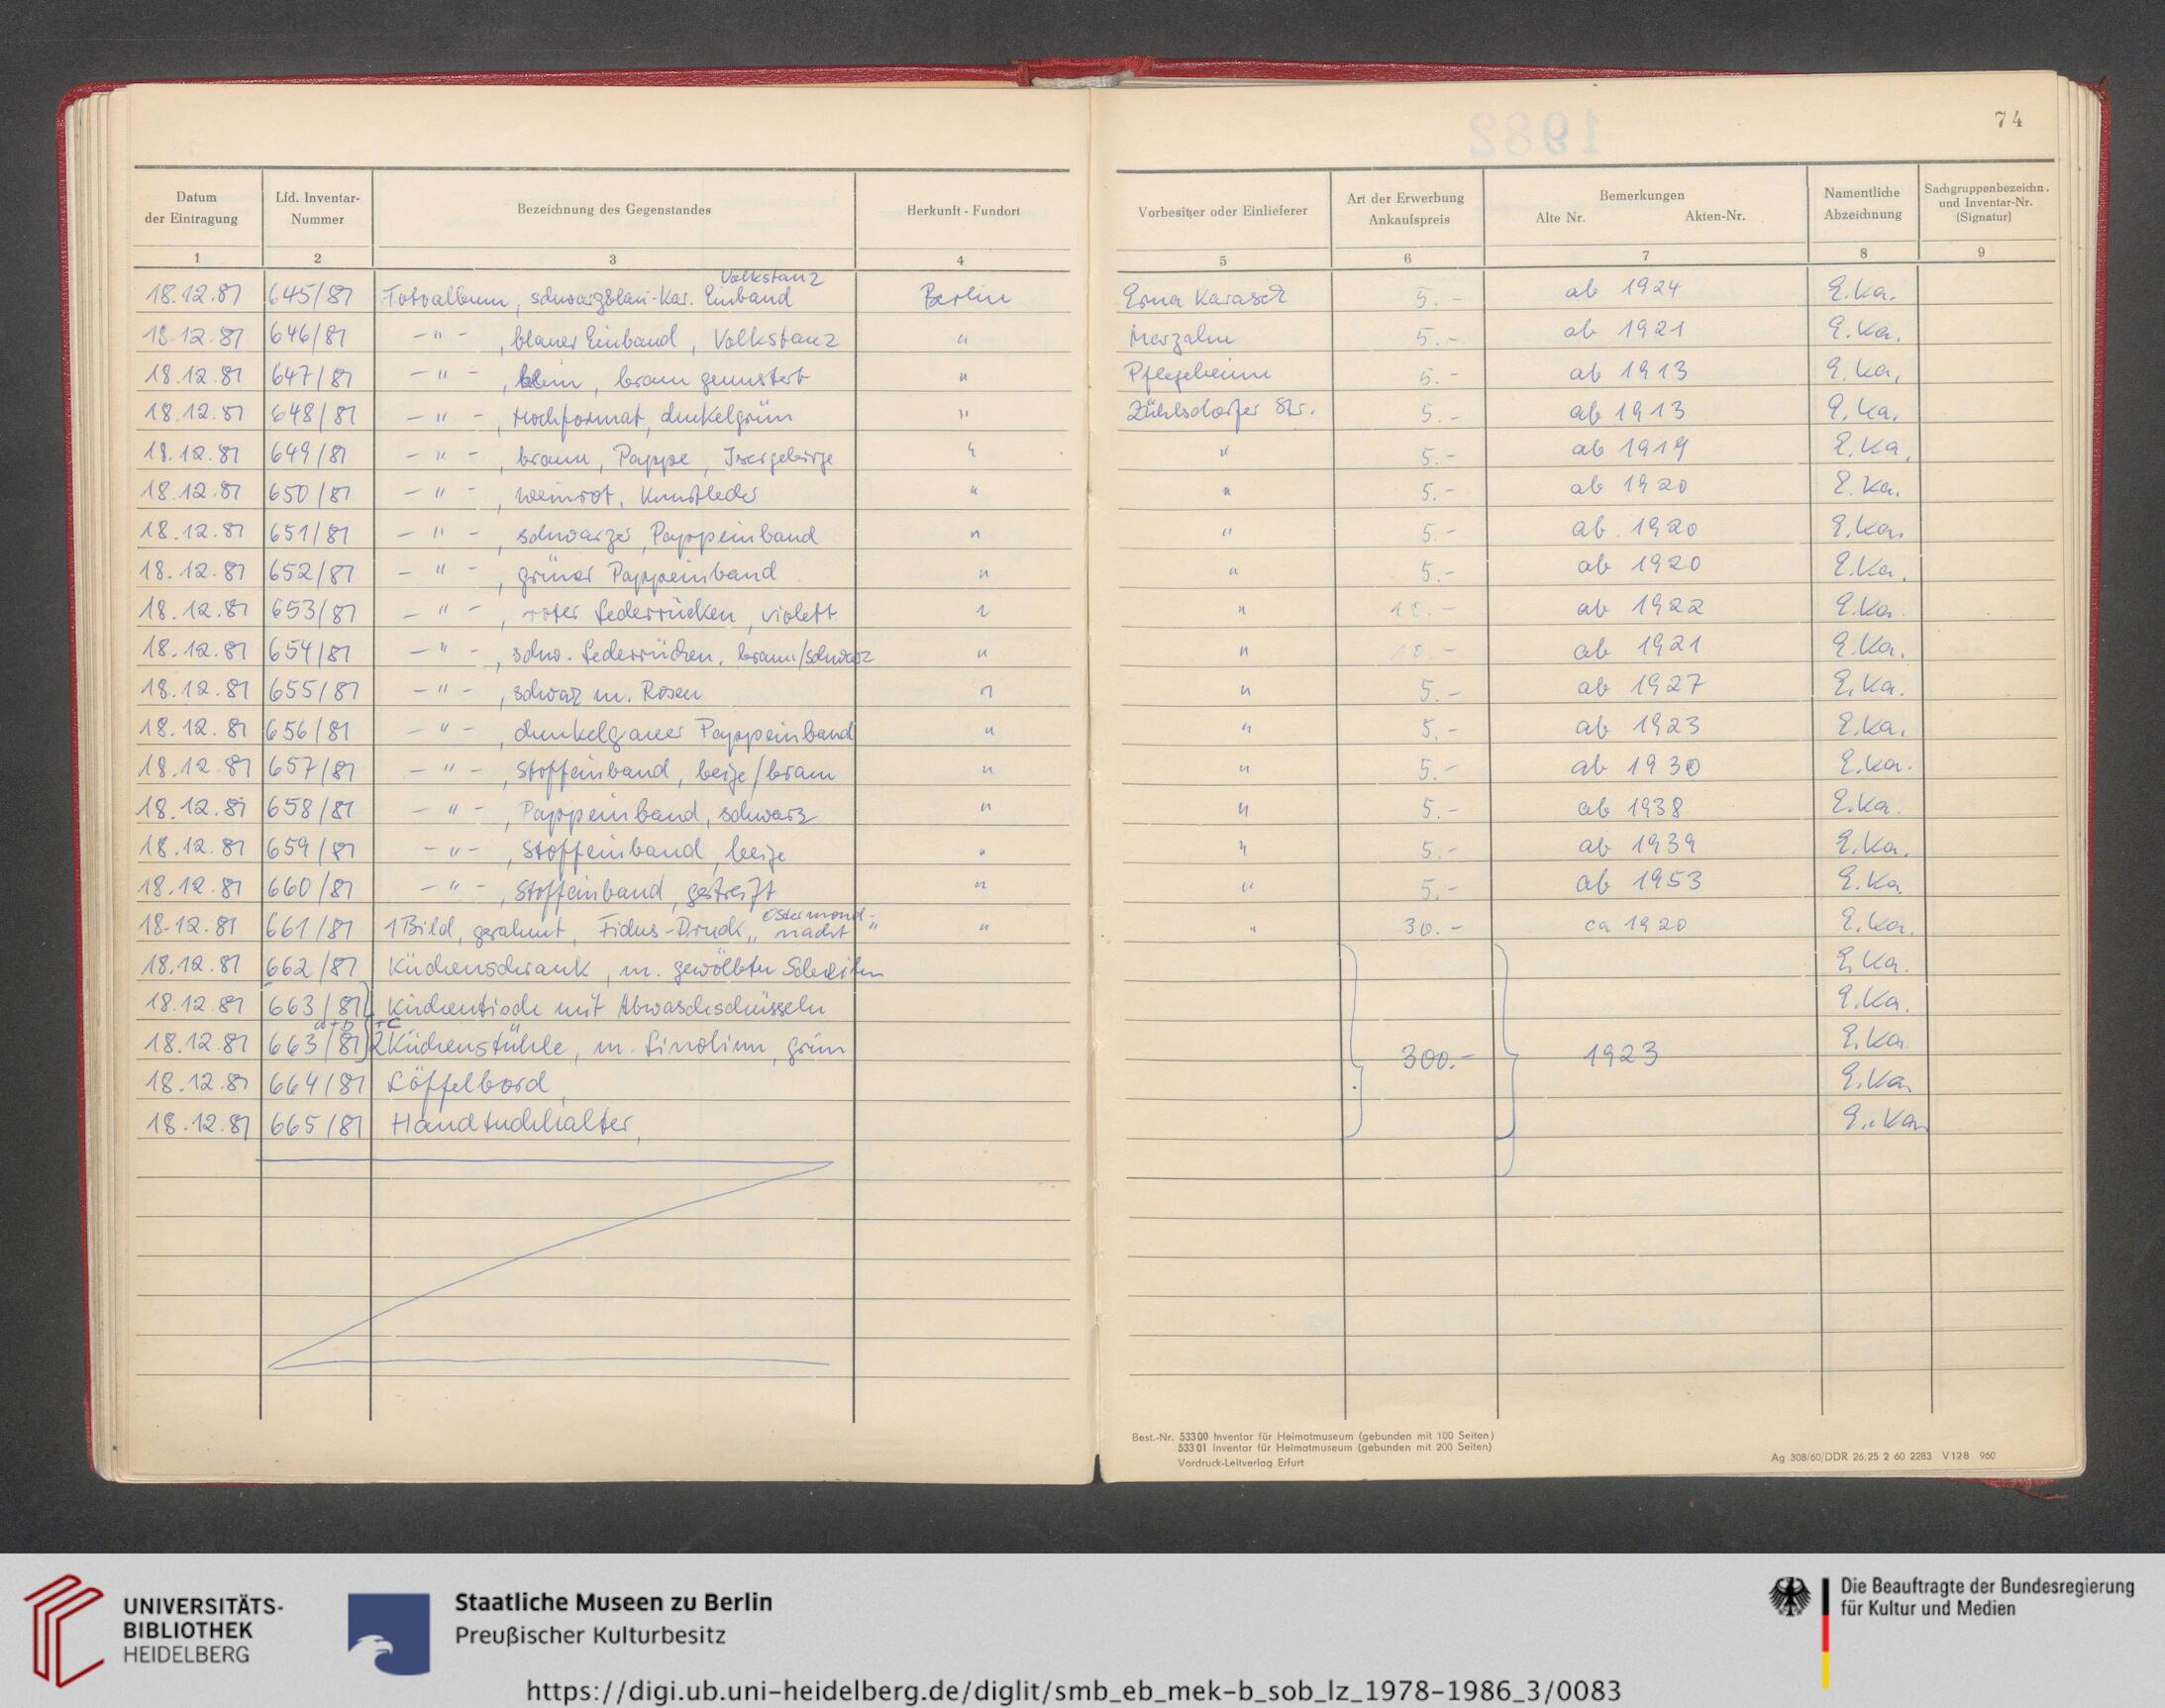 74
Datum der Eintragung | Lfd. Inventar-Nummer | Bezeichnung des Gegenstandes | Herkunft - Fundort | Vorbesitzer oder Einlieferer | Art der Erwerbung Ankaufspreis | Bemerkungen Alte Nr. Akten-Nr. | Namentliche Abzeichnung | Sachgruppenbezeichn. und Inventar-Nr. (Signatur)
1 | 2 | 3 | 4 | 5 | 6 | 7 | 8 | 9
Volkstanz
18.12.81 | 645/81 | Fotoalbum, schwarzblau-kar. Einband | Berlin | Erna Karasek | 5.- | ab 1924 | E.Ka.
18.12.81 | 646/81 | -"- , blauer Einband, Volkstanz | " | Marzahn | 5.- | ab 1921 | E.Ka.
18.12.81 | 647/81 | -"- , klein, braun gemustert | " | Pflegeheim | 5.- | ab 1913 | E.Ka.
18.12.81 | 648/81 | -"- , Hochformat, dunkelgrün | " | Zühlsdorfer Str. | 5.- | ab 1913 | E.Ka.
18.12.81 | 649/81 | -"- , braun, Pappe, Isergebirge | " | " | 5.- | ab 1919 | E.Ka.
18.12.81 | 650/81 | -"- , weinrot, Kunstleder | " | " | 5.- | ab 1920 | E.Ka.
18.12.81 | 651/81 | -"- , schwarzer Pappeinband | " | " | 5.- | ab 1920 | E.Ka.
18.12.81 | 652/81 | -"- , grüner Pappeinband | " | " | 5.- | ab 1920 | E.Ka.
18.12.81 | 653/81 | -"- , roter Lederrücken, violett | " | " | 10.- | ab 1922 | E.Ka.
18.12.81 | 654/81 | -"- , schw. Lederrücken, braun/schwarz | " | " | 10.- | ab 1921 | E.Ka.
18.12.81 | 655/81 | -"- , schwaz m. Rosen | " | " | 5.- | ab 1927 | E.Ka.
18.12.81 | 656/81 | -"- , dunkelgauer Pappeinband | " | " | 5.- | ab 1923 | E.Ka.
18.12.81 | 657/81 | -"- , Stoffeinband, beige/braun | " | " | 5.- | ab 1930 | E.Ka.
18.12.81 | 658/81 | -"- , Pappeinband, schwarz | " | " | 5.- | ab 1938 | E.Ka.
18.12.81 | 659/81 | -"- , Stoffeinband, beige | " | " | 5.- | ab 1939 | E.Ka.
18.12.81 | 660/81 | -"- , Stoffeinband, gestreift | " | " | 5.- | ab 1953 | E.Ka.
18.12.81 | 661/81 | 1 Bild, gerahmt, Fidus-Druck „Ostermond-nacht" | " | " | 30.- | ca 1920 | E.Ka.
18.12.81 | 662/81 | Küchenschrank, m. gewölbten Scheiben | E.Ka.
18.12.81 | 663/81 | Küchentisch mit Abwaschschüsseln | E.Ka.
a+b +c
18.12.81 | 663/81 | 2 Küchenstühle, m. Linolium, grün | 300.- | 1923 | E.Ka.
18.12.81 | 664/81 | Löffelbord, | E.Ka.
18.12.81 | 665/81 | Handtuchhalter, | E.Ka.
Best.-Nr. 53300 Inventar für Heimatmuseum (gebunden mit 100 Seiten)
53301 Inventar für Heimatmuseum (gebunden mit 200 Seiten)
Vordruck-Leitverlag Erfurt
Ag 308/60/DDR 26,25 2 60 2283 V128 960
UNIVERSITÄTS-
BIBLIOTHEK
HEIDELBERG
Staatliche Museen zu Berlin
Preußischer Kulturbesitz
Die Beauftragte der Bundesregierung
für Kultur und Medien
https://digi.ub.uni-heidelberg.de/diglit/smb_eb_mek-b_sob_lz_1978-1986_3/0083